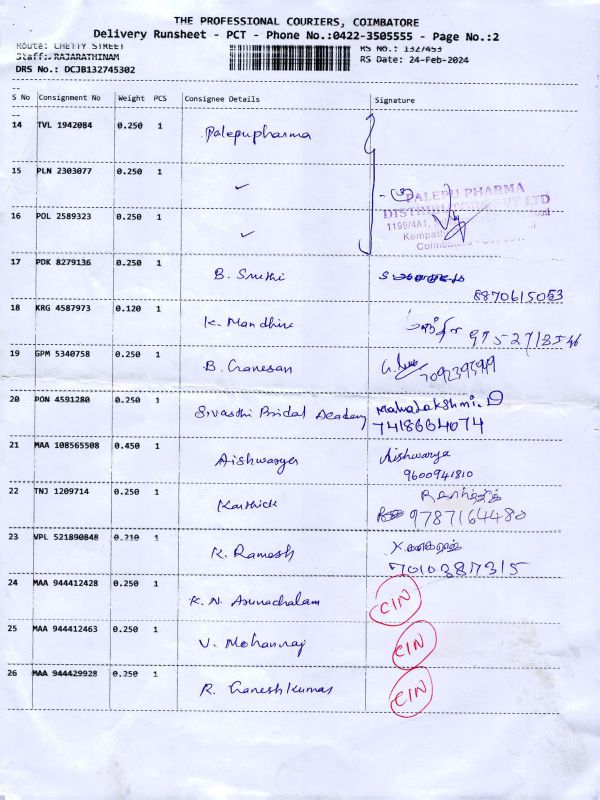 THE PROFESSIONAL COURIERS, COIMBATORE
Delivery Runsheet - PCT - Phone No.:0422-3505555 - Page No.:2
Route: CHETTY STREET RS No.: 1327453
Staff: RAJARATHINAM RS Date: 24-Feb-2024
DRS No.: DCJB132745302
S No Consignment No Weight PCS Consignee Details Signature
14 TVL 1942084 0.250 1 Palepupharma
15 PLN 2303077 0.250 1 ✓
(3) PALEPU PHARMA
DISTRIBUTORS PVT LTD
1199/4A1,
16 POL 2589323 0.250 1 ✓
17 PDK 8279136 0.250 1 B. Sruthi
8870615053
18 KRG 4587973 0.120 1 K. Mandhire
19 GPM 5340758 0.250 1 B. Ganesan
20 PON 4591280 0.250 1 Srivasthi Bridal Academy Mahalakshmi. D
7418664074
21 MAA 108565508 0.450 1 Aishwarya Aishwarya
9600941810
22 TNJ 1209714 0.250 1 Karthick
9787164480
23 VPL 521890848 0.210 1 K. Ramesh
7010387315
24 MAA 944412428 0.250 1 K. N. Arunachalam CIN
25 MAA 944412463 0.250 1 V. Mohanraj CIN
26 MAA 944429928 0.250 1 R. Ganeshkumar CIN